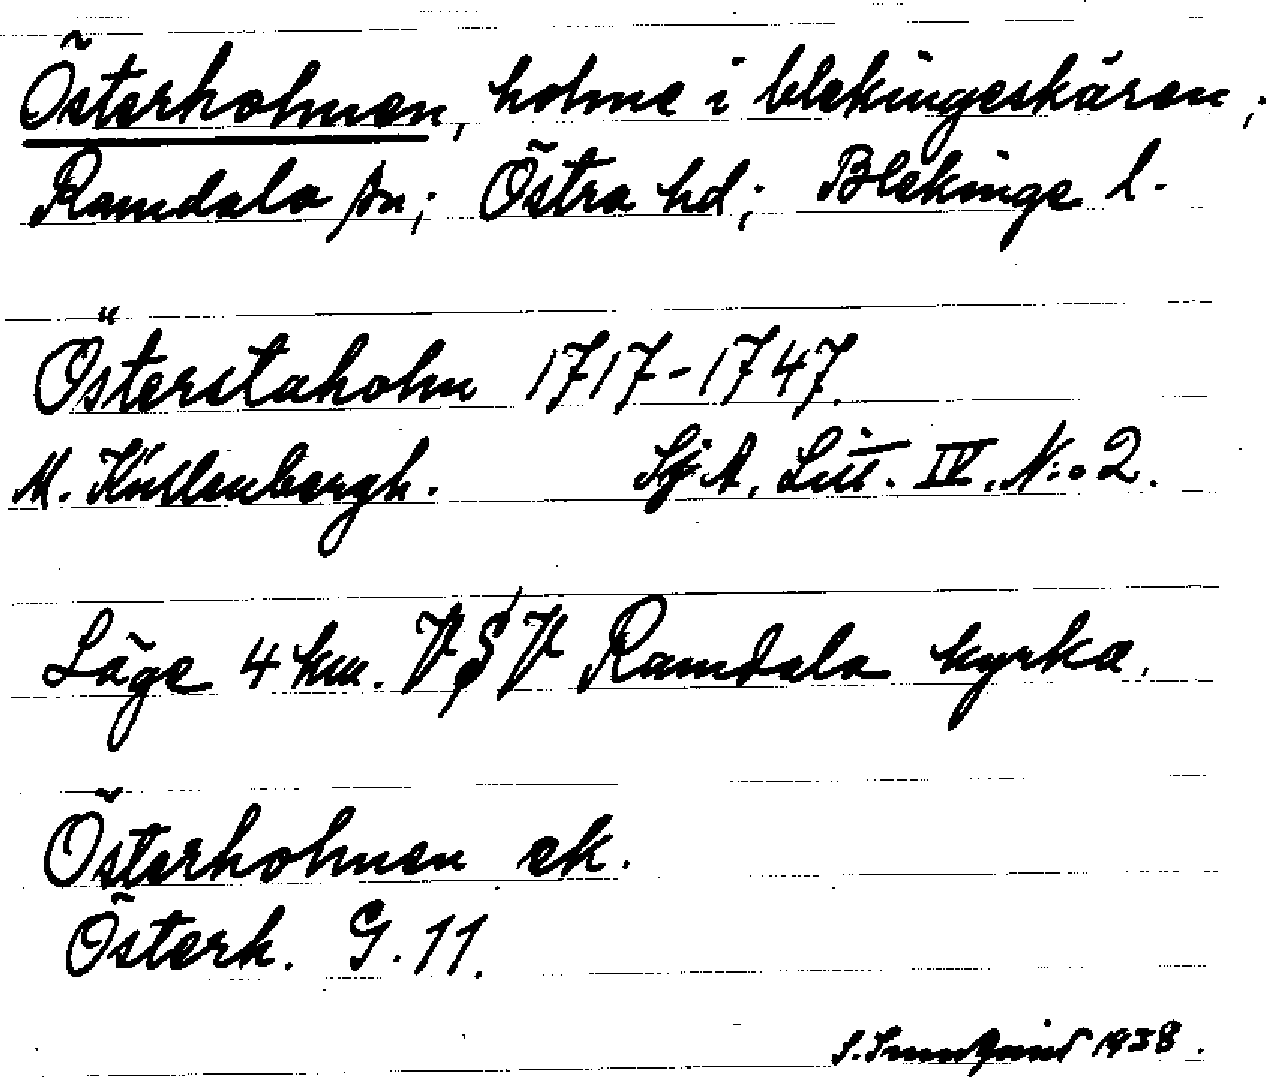 Österholmen, holme i blekingeskären;
Ramdala sn; Östra hd; Blekinge l.
Österstaholm 1717-1747.
M. Küllenbergh. Sj. A. Litt. IV. N:o 2.
Läge 4 km. VSV Ramdala kyrka.
Österholmen ek.
Österk. G. 11.
1938.